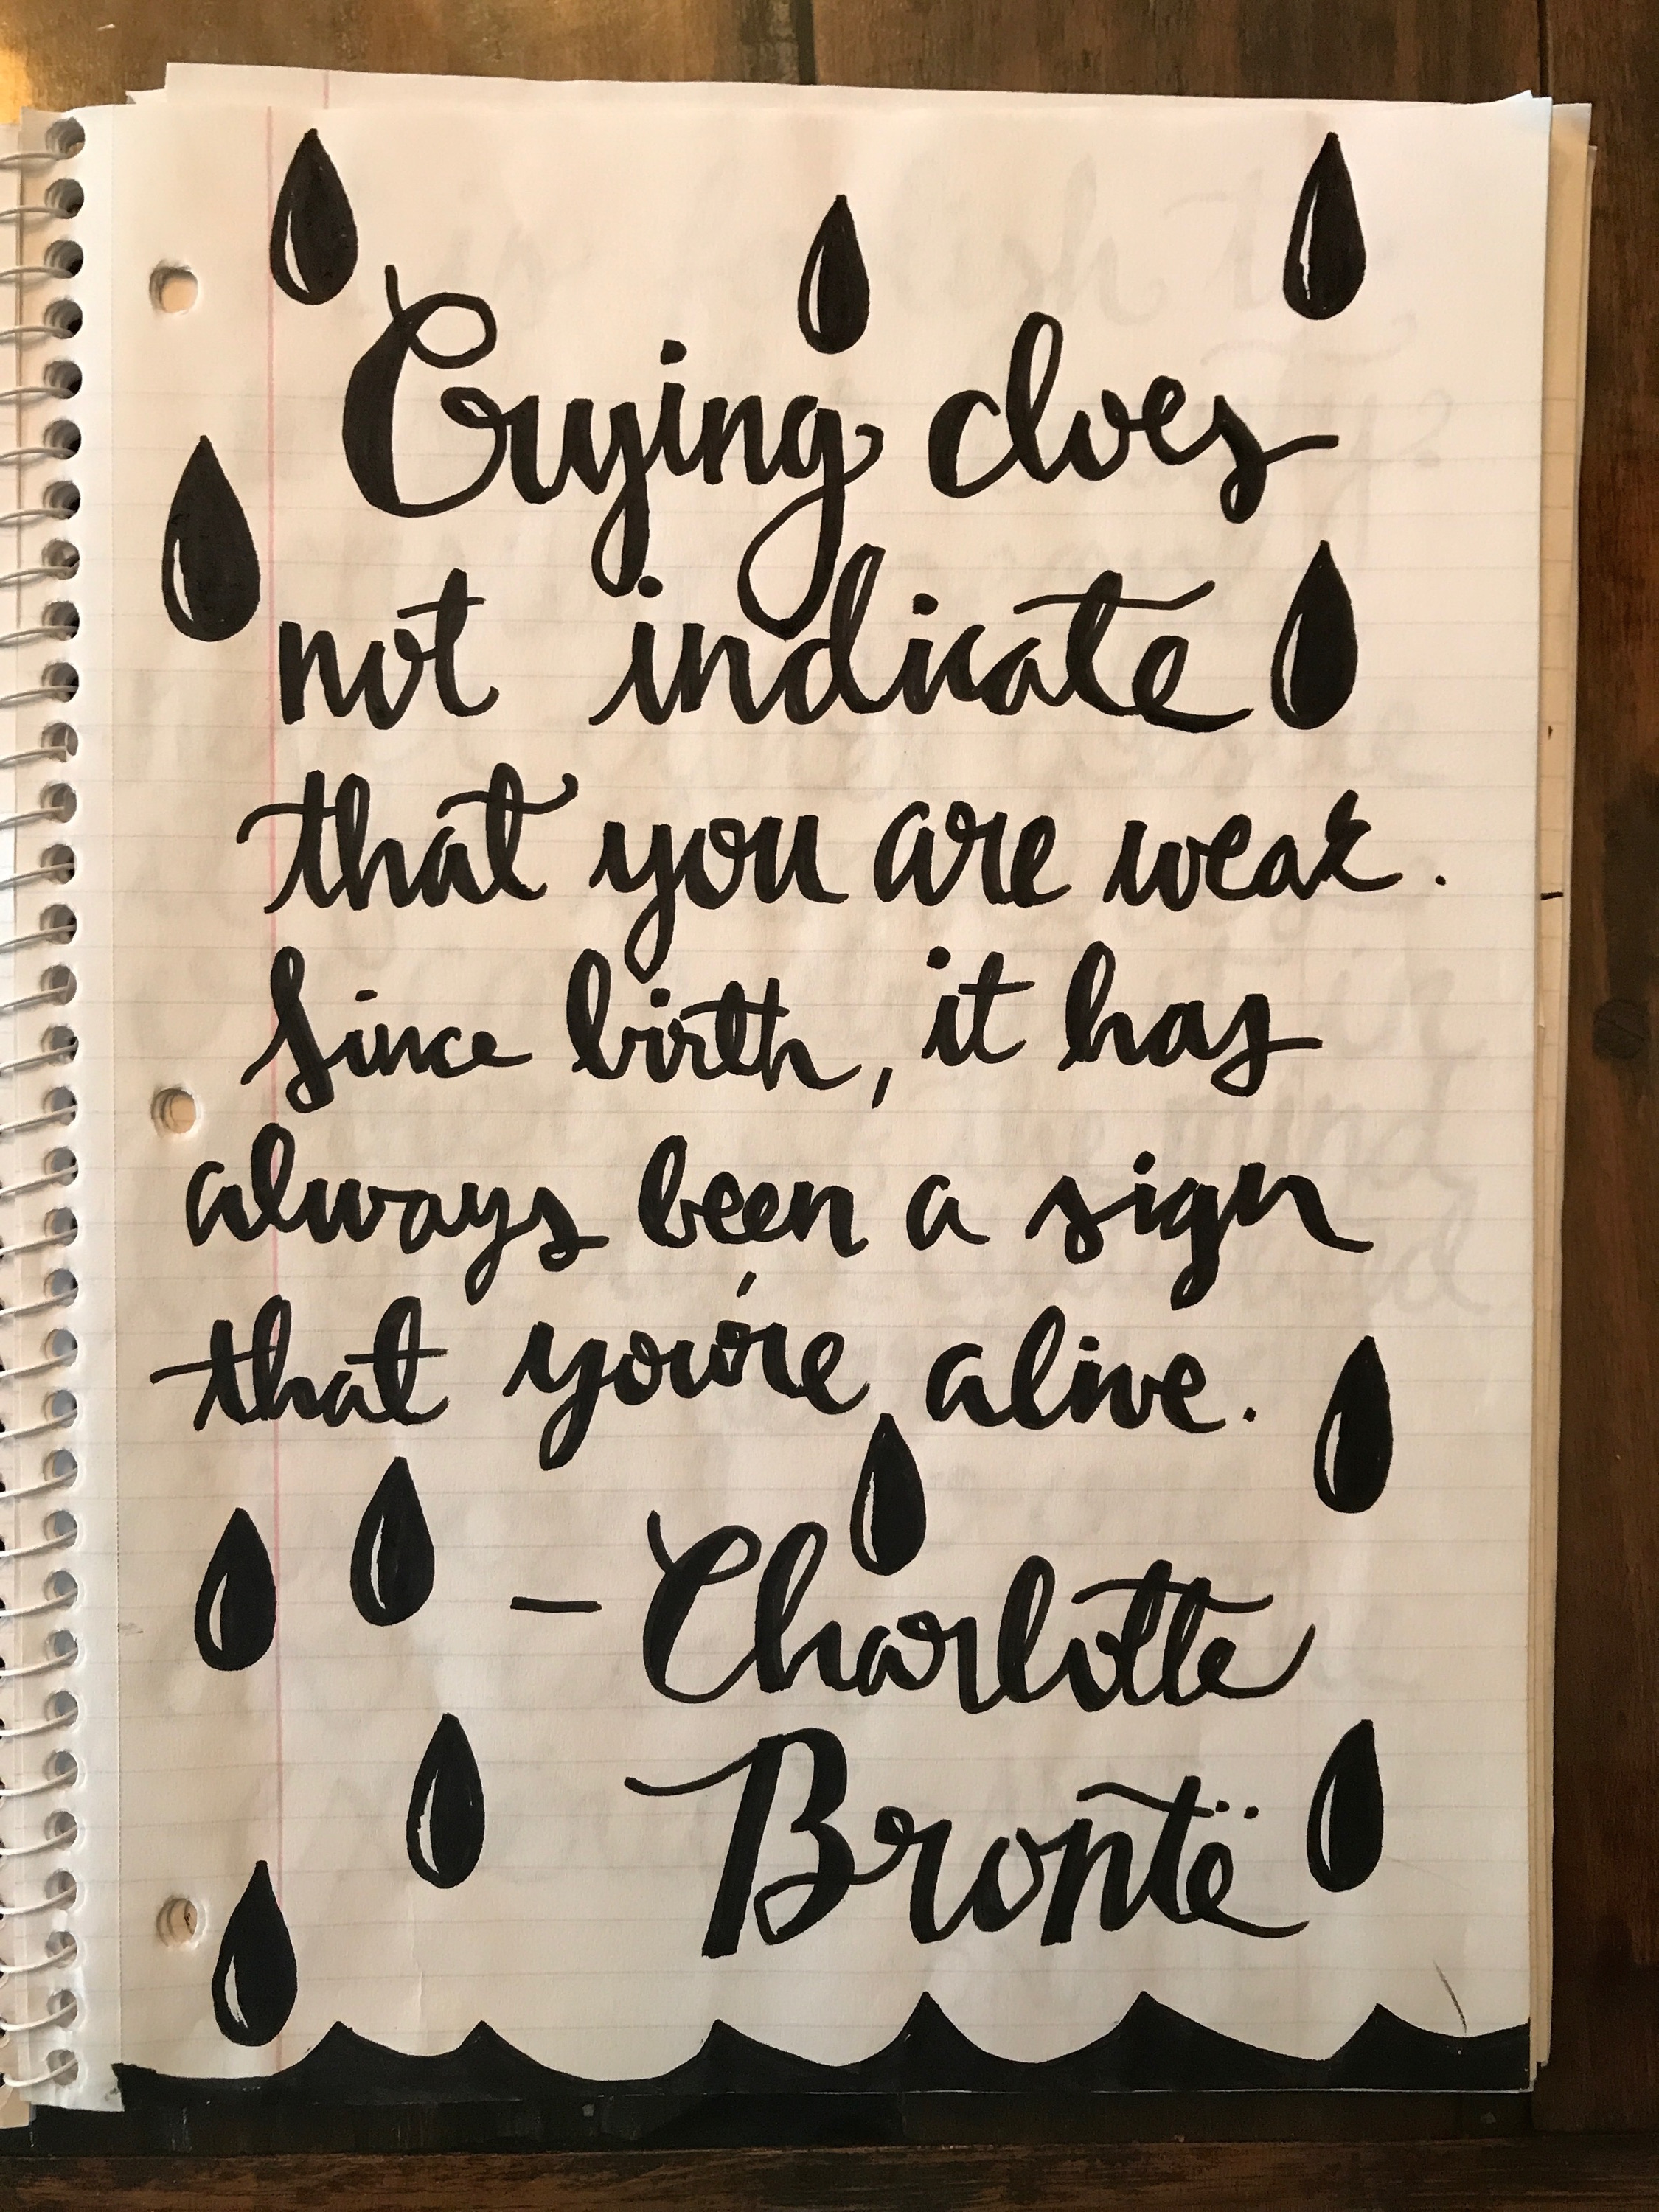 Crying does
not indicate
that you are weak.
Since birth, it has
always been a sign
that you're alive.
– Charlotte
Brontë